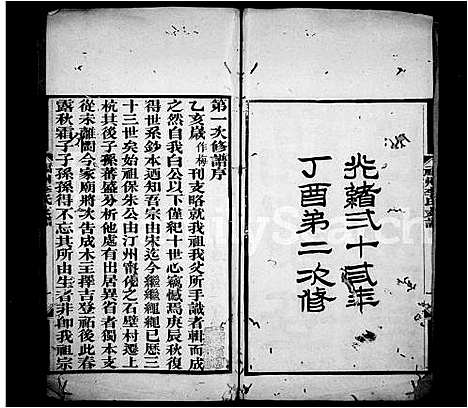 光緒弍十叁年
丁酉第二次修
第一次修譜序
乙亥歲作梅刊支略就我祖我父所手識者輯而成
之然自我白公以下僅紀十世心竊憾焉庚辰秋復
得世系鈔本迺知吾宗由宋迄今繼繼繩繩已歷三
十三世矣始祖保朱公由汀州甯化之石壁村遷上
杭其後子孫蕃盛分析他處有出居異省者獨本支
從未離閩今家廟將次告成木主擇吉登祏後此春
露秋霜子子孫孫得不忘其所由生者非仰我祖宗